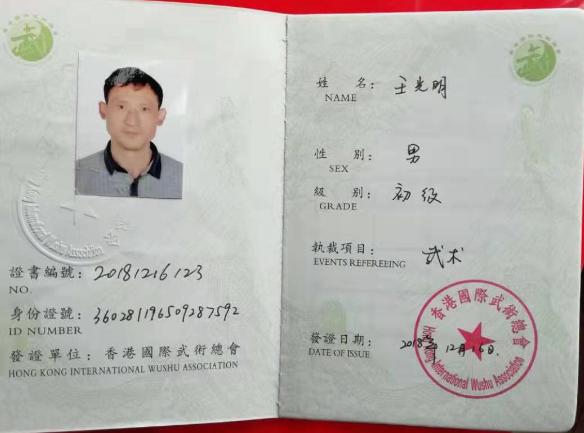 證書編號：20181216123
NO.
身份證號：360281196509287592
ID NUMBER
發證單位：香港國際武術總會
HONG KONG INTERNATIONAL WUSHU ASSOCIATION
姓 名：王光明
NAME
性 別：男
SEX
級 別：初级
GRADE
執裁項目：武术
EVENTS REFEREEING
發證日期：2018年12月16日.
DATE OF ISSUE
香港國際武術總會
Hong Kong International Wushu Association